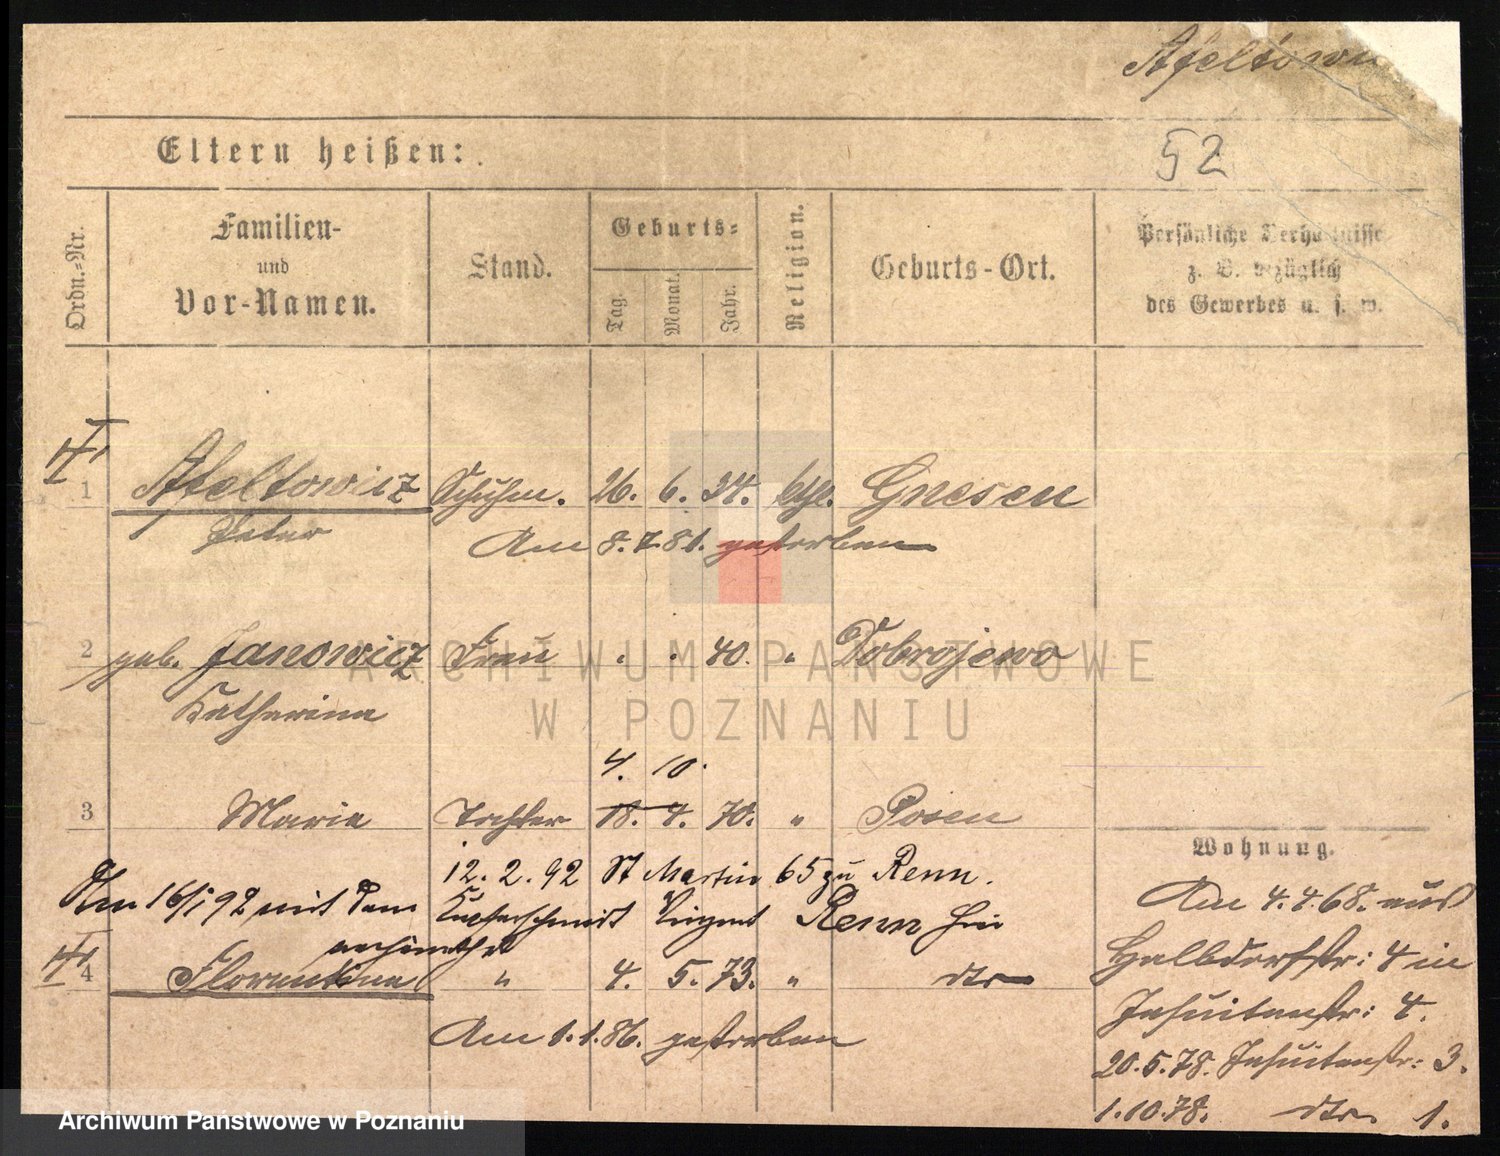 Afeltow
52
Eltern heißen:
Ordn.-Nr.
Familien-
und
Vor-Namen.
Stand.
Geburts-
Tag.
Monat.
Jahr.
Religion.
Geburts-Ort.
Persönliche Verhältnisse
z. B. bezüglich
des Gewerbes u. s. w.
1 Afeltowicz Schuhm. 26. 6. 34. kth. Gnesen
Peter
Am 8.7.81. gestorben
2 geb. Janowicz Frau " " 40. " Dobrojewo
Katharina
4. 10.
3 Marie Tochter 18. 4. 70. " Posen
12. 2. 92 St Martin 65 zu Renn.
Am 16/1 92 mit dem Kupferschmidt Vinzent Renn hier
verheirathet
4 Florentine " 4. 5. 73. " dto
Am 1.1.86. gestorben
Wohnung.
Am 4.4.68. aus
Halbdorfstr: 4 in
Jesuitenstr: 4.
20.5.78. Jesuitenstr: 3.
1.10.78. dto 1.
ARCHIWUM PAŃSTWOWE
W POZNANIU
Archiwum Państwowe w Poznaniu